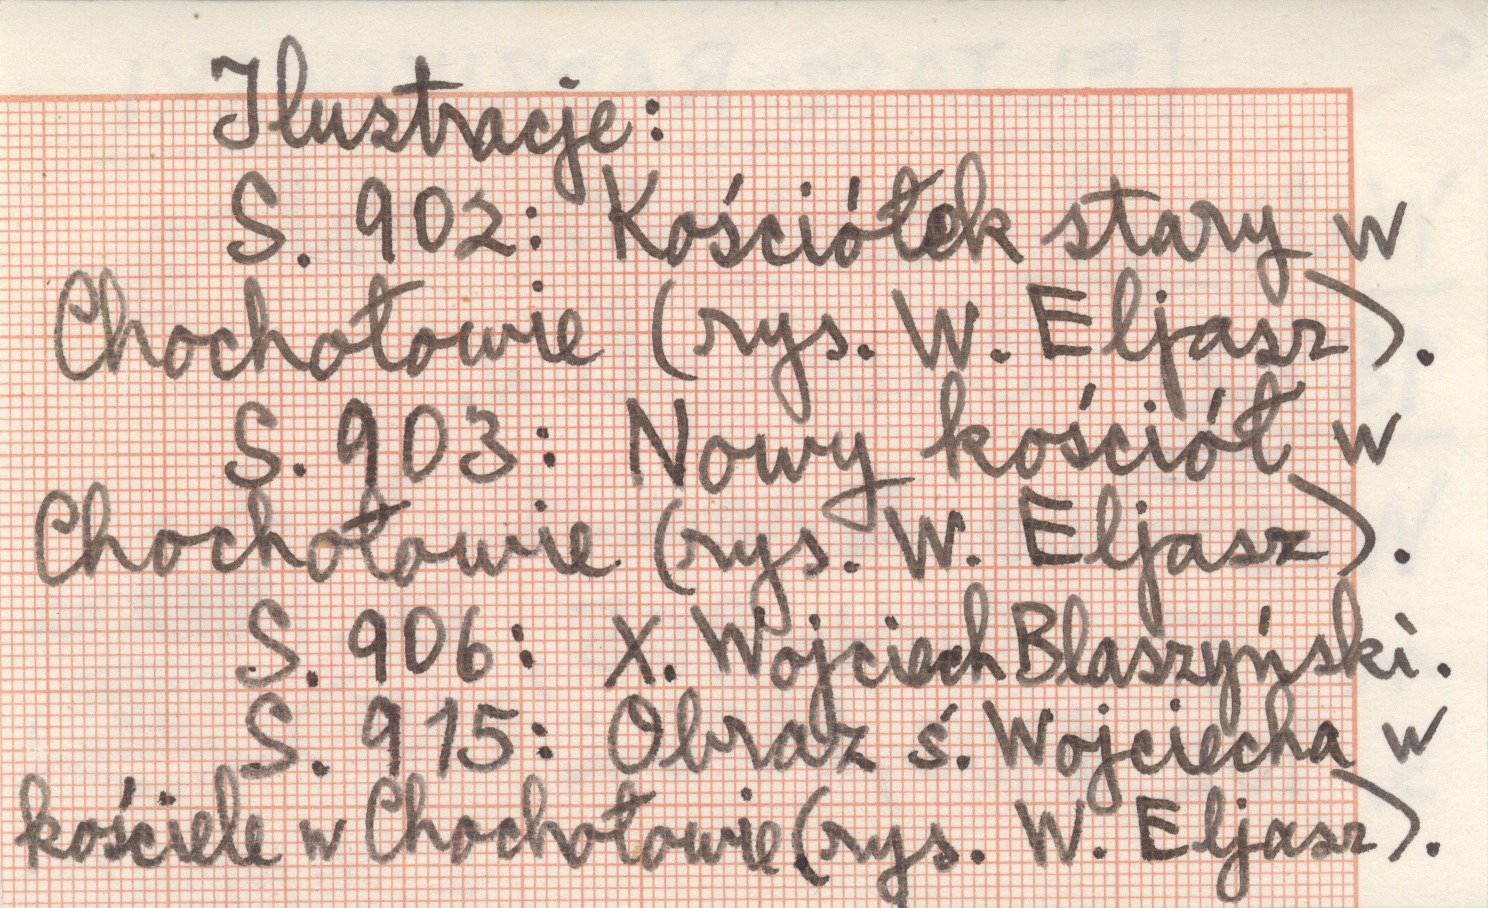 Ilustracje:
S. 902: Kościółek stary w
Chochołowie (rys. W. Eljasz).
S. 903: Nowy kościół w
Chochołowie (rys. W. Eljasz).
S. 906: X. Wojciech Blaszyński.
S. 915: Obraz ś. Wojciecha w
kościele w Chochołowie (rys. W. Eljasz).